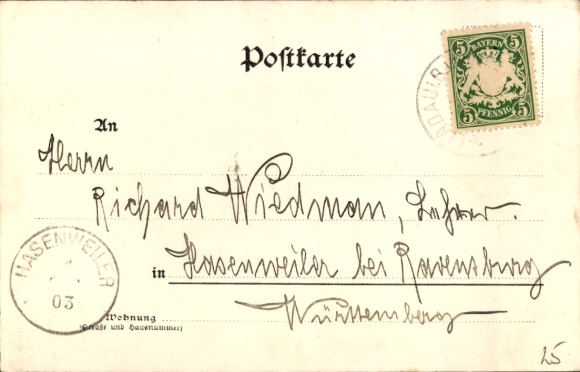 5 BAYERN 5
5 PFENNIG 5
LINDAU i. B.
Postkarte
An
Herrn
Richard Wiedman, Lehrer.
in Hasenweiler bei Ravensburg
HASENWEILER
03
Wohnung
(Straße und Hausnummer)
Württemberg
25